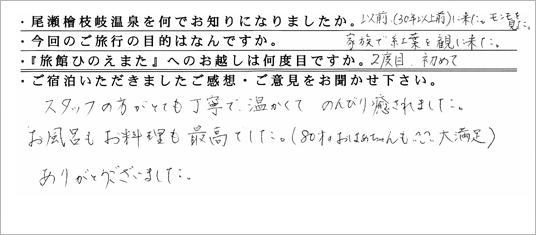 ・尾瀬檜枝岐温泉を何でお知りになりましたか。以前(30年以上前)に来た。モンモを見た。
・今回のご旅行の目的はなんですか。 家族で紅葉を観に来た。
・『旅館ひのえまた』へのお越しは何度目ですか。2度目、初めて
・ご宿泊いただきましたご感想・ご意見をお聞かせ下さい。
スタッフの方がとても丁寧で、温かくて のんびり癒されました。
お風呂もお料理も最高でした。(80才のおばあちゃんも 大満足)
ありがとうございました。